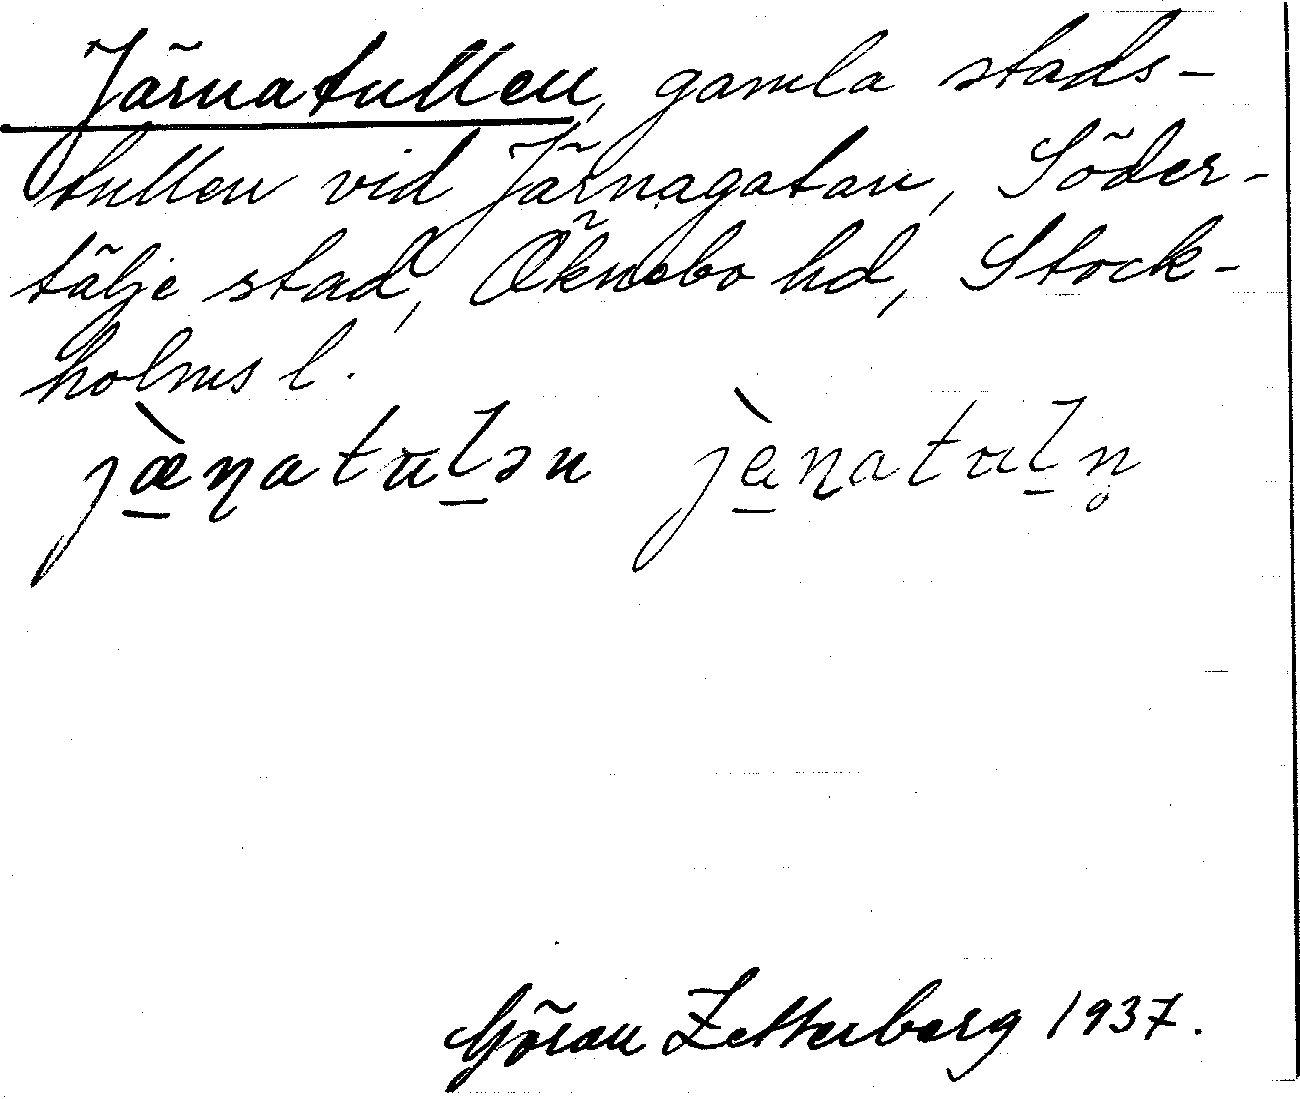 Järnatullen, gamla stads-
tullen vid Järnagatan, Söder-
tälje stad, Öknebo hd, Stock-
holms l.
jæ̱̀ɳatɯḻən jèa̱ɳatɯḻn̥
Göran Zetterberg 1937.